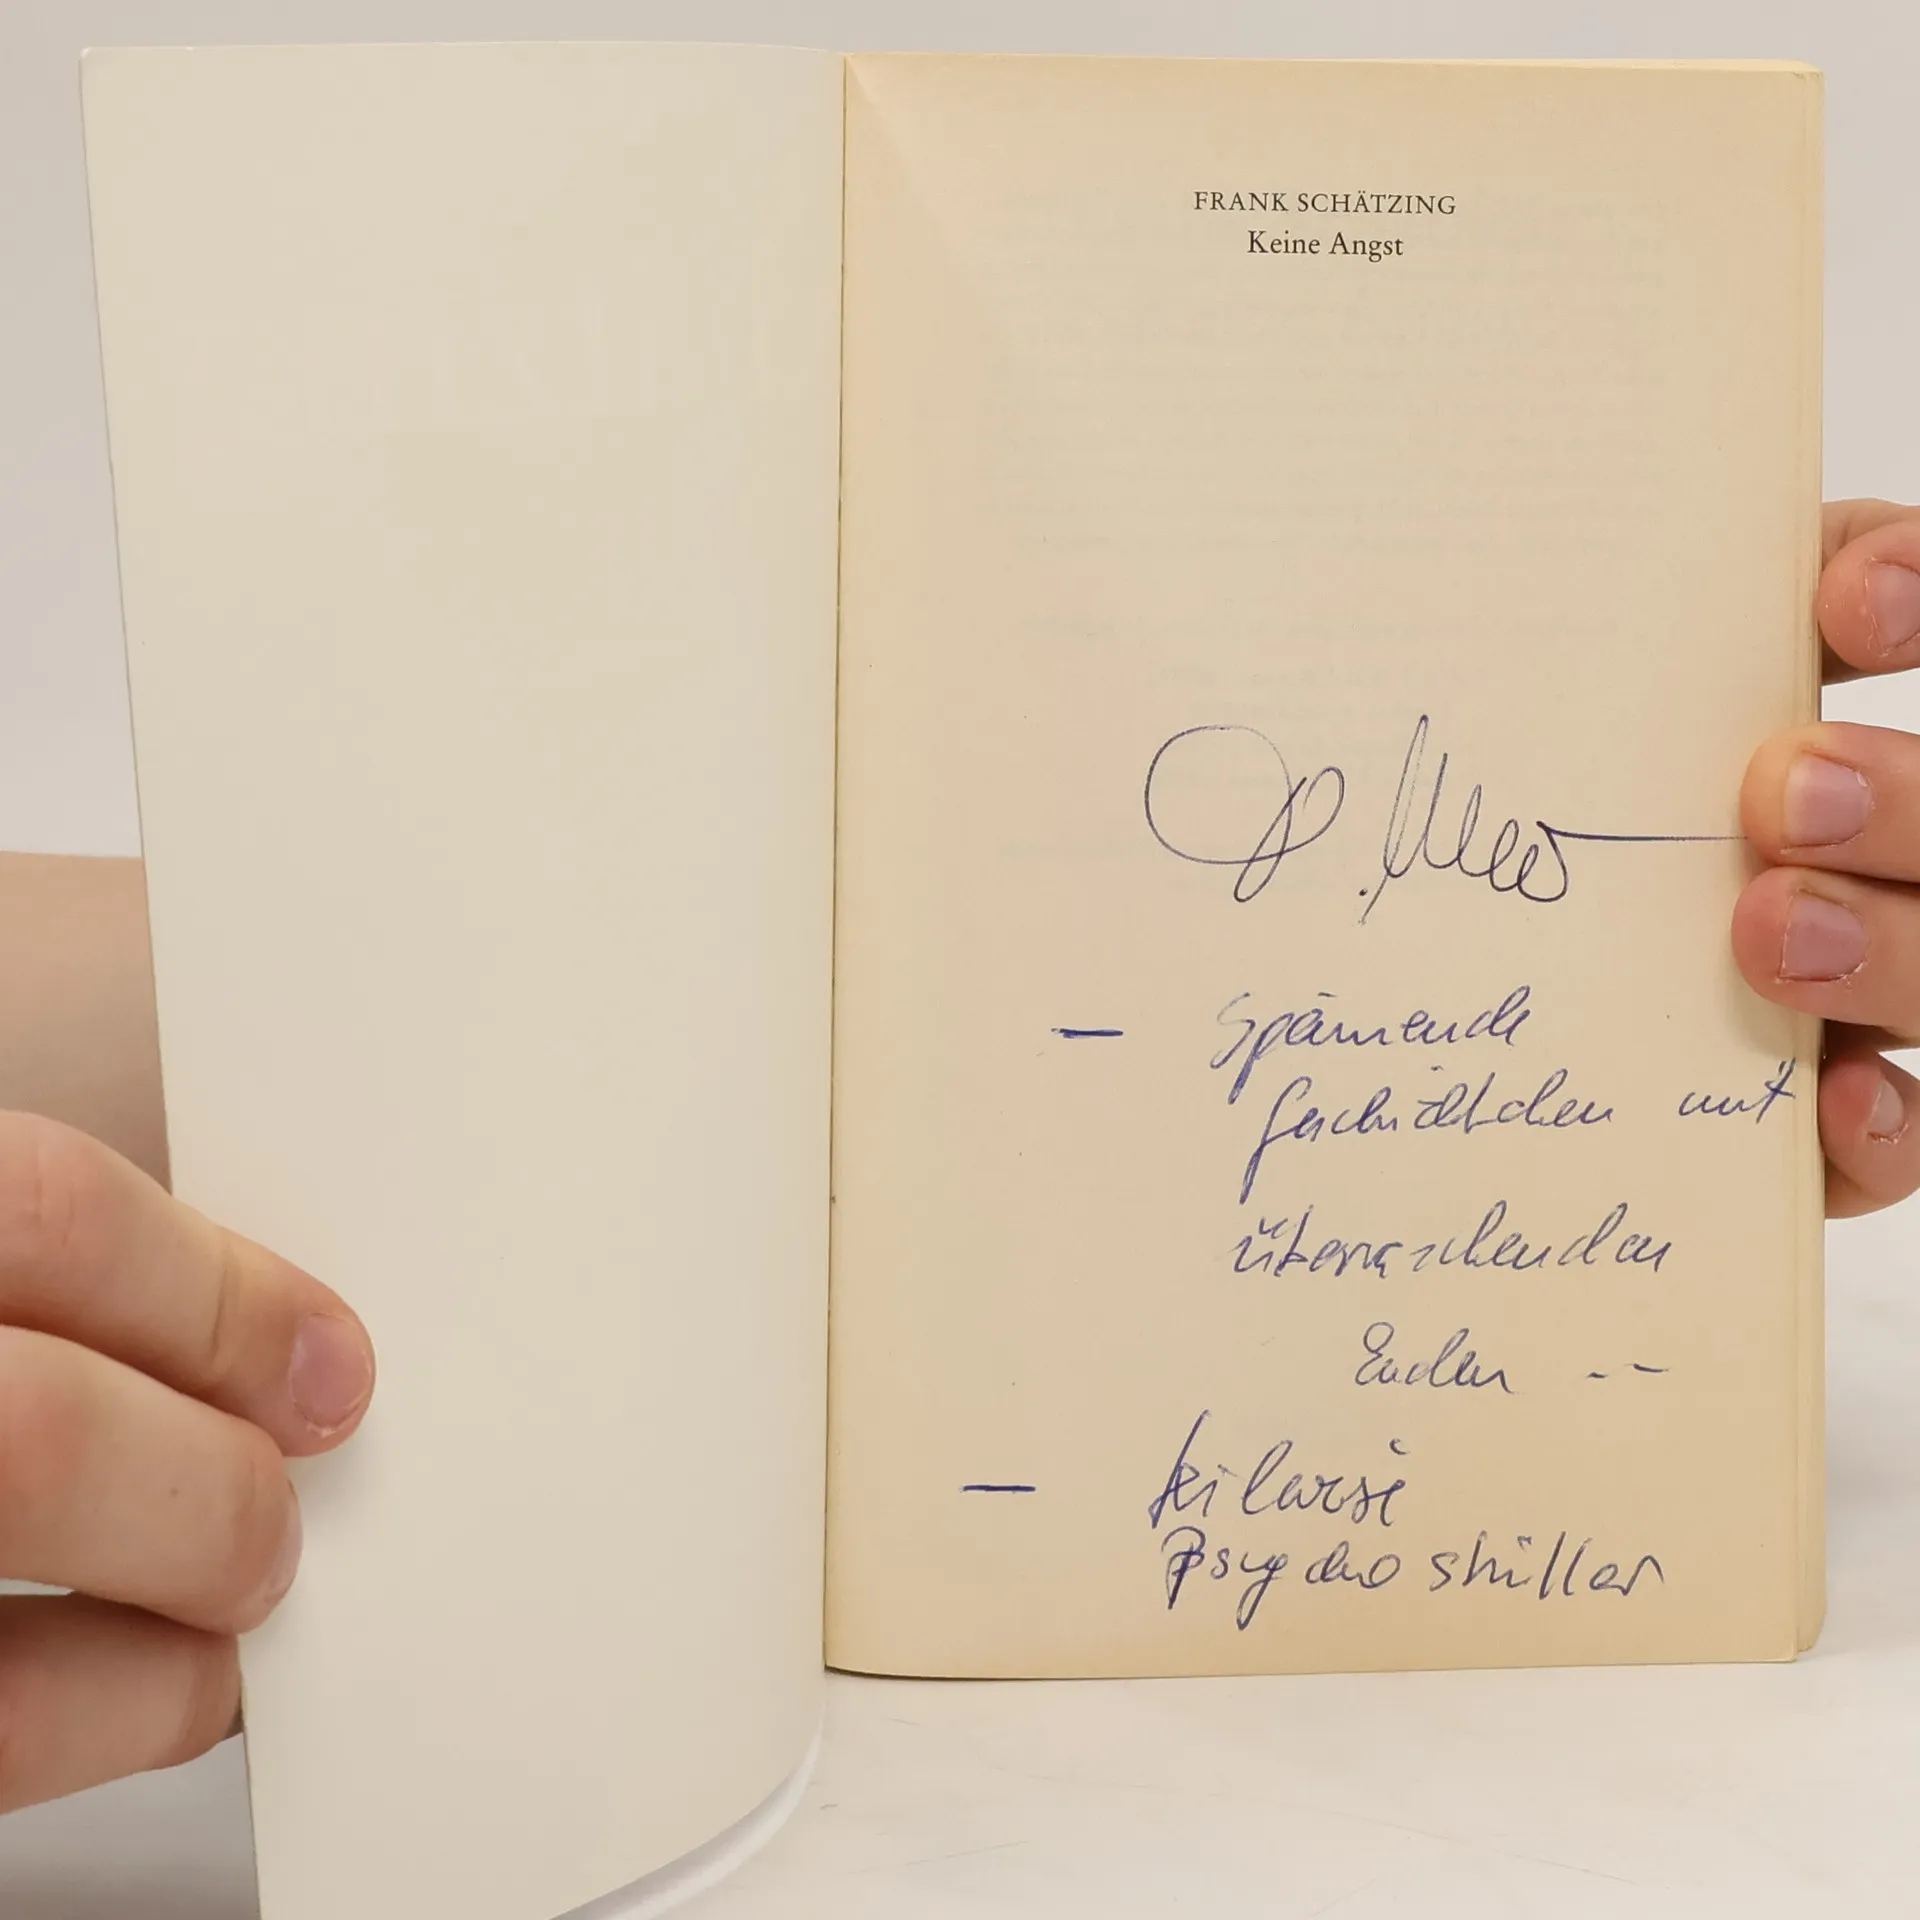 FRANK SCHÄTZING
Keine Angst
– Spannende
Geschichtchen mit
überraschenden
Enden --
– 
Psychothriller